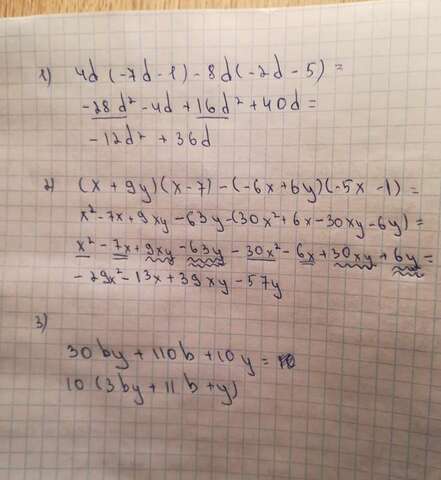 1) 4d(-7d-1)-8d(-2d-5)=
-28d²-4d+16d²+40d=
-12d²+36d
2) (x+9y)(x-7)-(-6x+6y)(-5x-1)=
x²-7x+9xy-63y-(30x²+6x-30xy-6y)=
x²-7x+9xy-63y-30x²-6x+30xy+6y=
-29x²-13x+39xy-57y
3)
30by+110b+10y=
10(3by+11b+y)